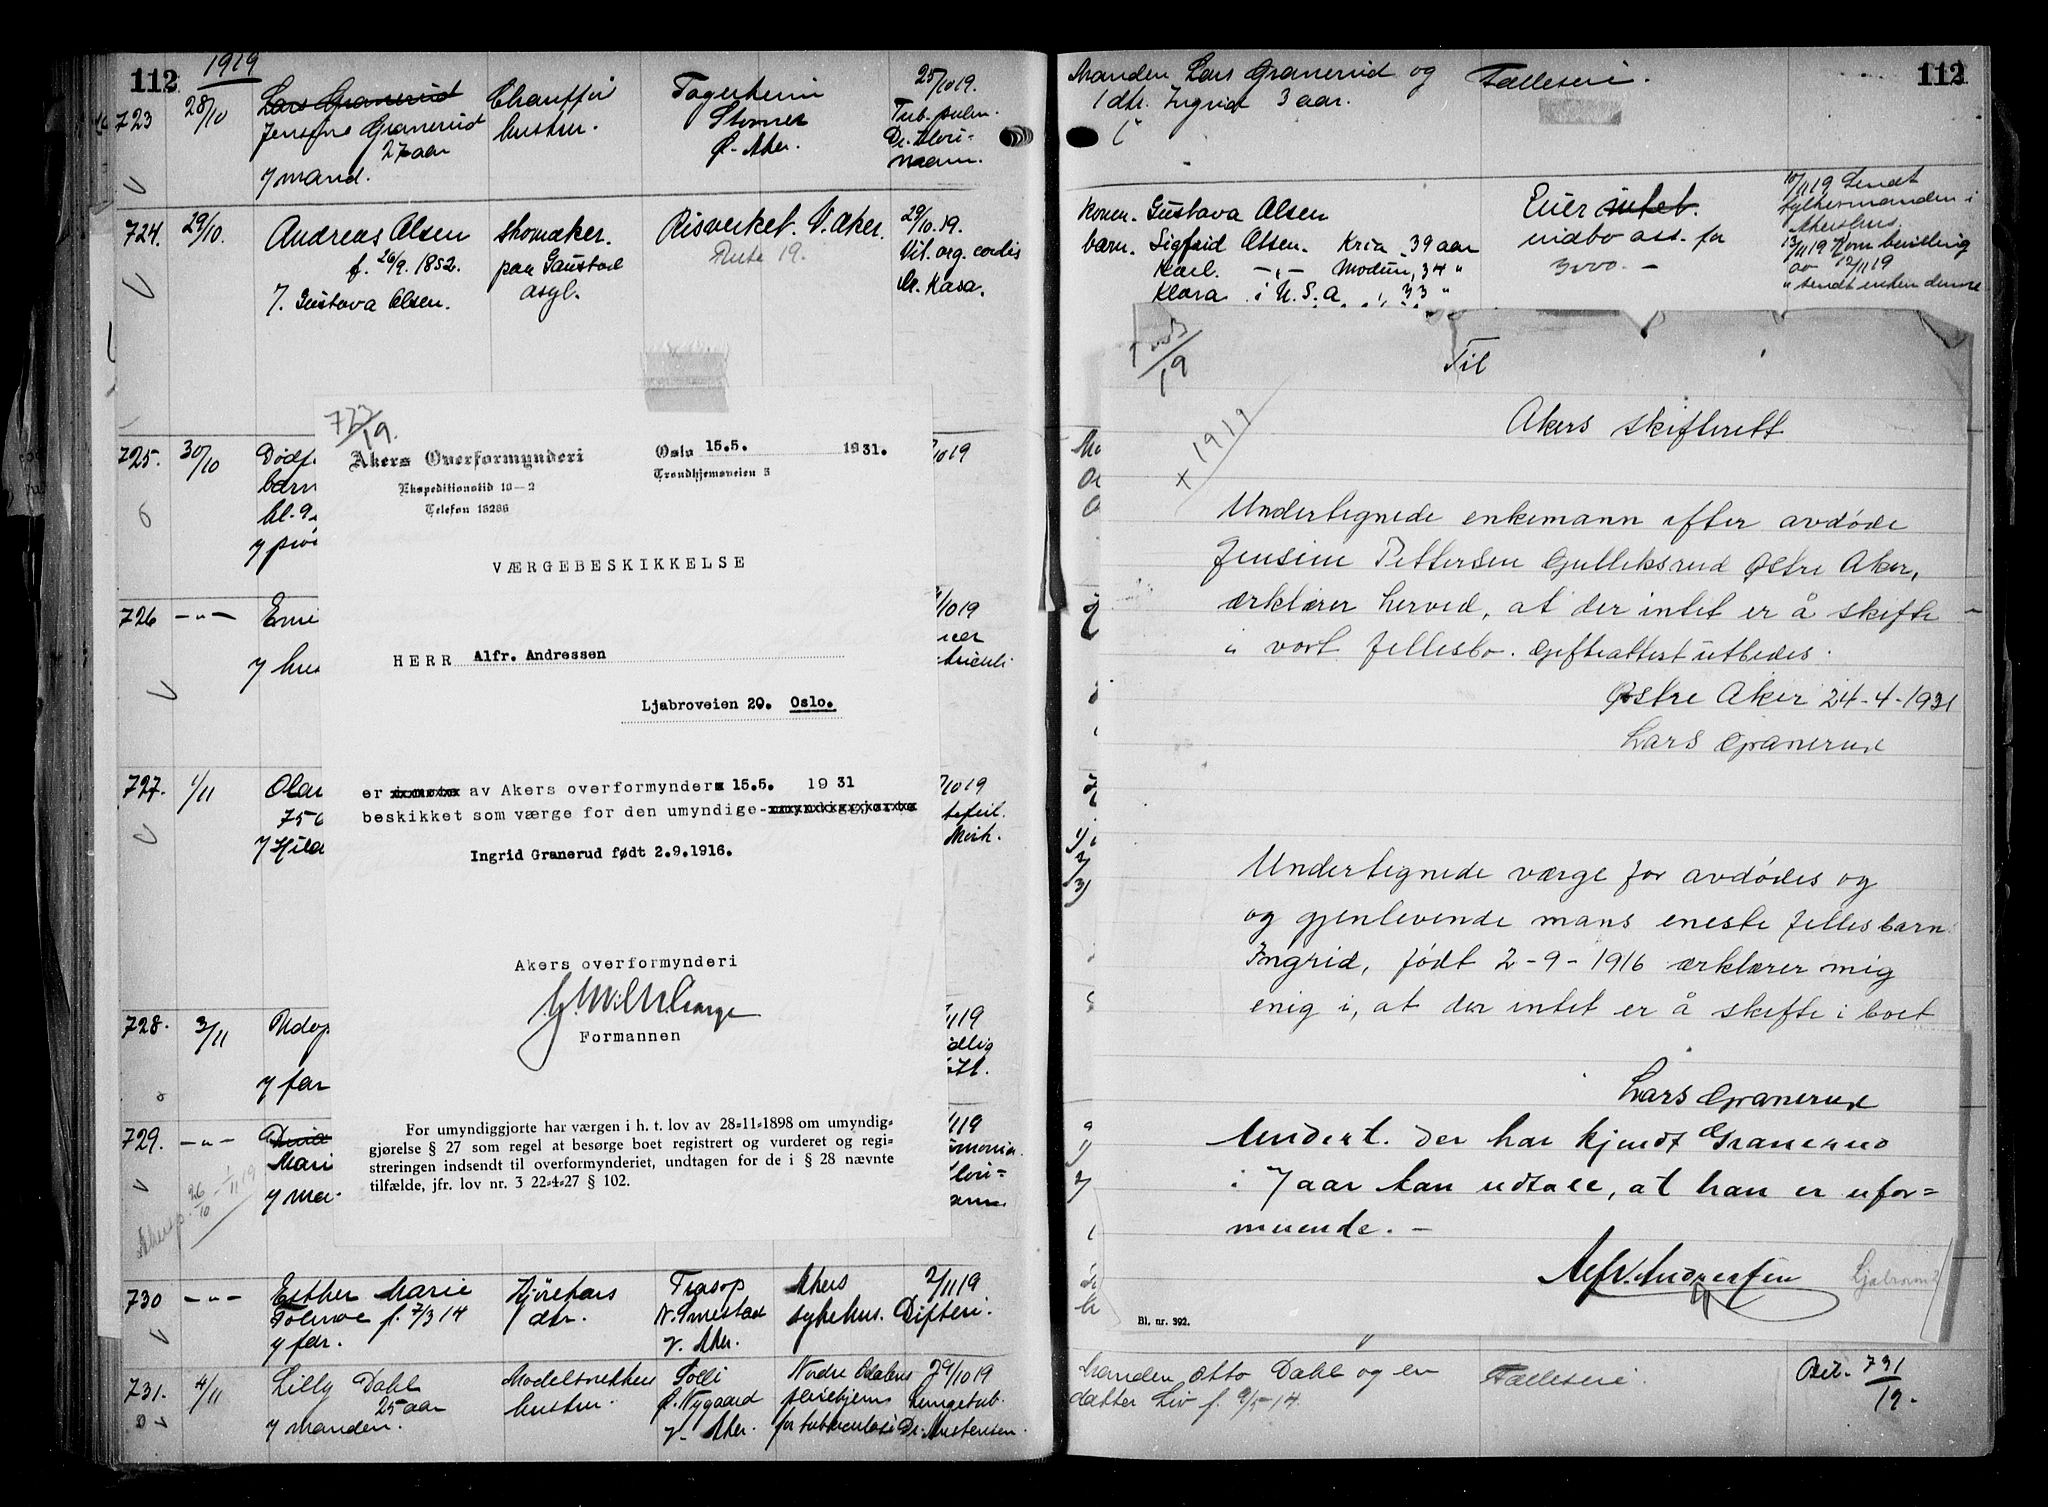 112
1919
723
28/10
Lars Granerud
Jensine Granerud
27 aar
7 mand.
Chauffør
hustru.
Fagerheim
Stovner
Ø. Aker.
25/10 19.
Tub. pulm.
724.
29/10.
Andreas Olsen
f. 20/9. 1852.
7. Gustava Olsen.
skomaker.
paa Gaustad
asyl.
Risverket. V. Aker.
Rute 19.
29/10. 19.
Vit. org. cordis
Dr. Kasa.
725.
30/10
Dødf
barn
/10 19
726
-"-
7 hus
/10 19
727.
1/11
Olau
75
7 Hild
/10 19
728.
3/11
Udøp
7 far
/11 19
729.
-"-
Mari
/11 19
26/10 - 1/11 19
730
-"-
Esther Marie
f. 7/3 14
7 far.
Kjørekars
dtr.
Trasop
N. Smestad
V. Aker.
Akers
sykehus.
2/11 19
Difteri.
731.
4/11
Lilly Dahl
25 aar
7 manden.
hustru.
Ø. Nygaard
V. Aker.
Nordre Odalens
pleiehjem
for tuberculose
29/10 19
Lungetub.
723/19.
Akers Overformynderi
Ekspeditionstid 10-2
Telefon 18286
Oslo 15.5. 1931.
Trondhjemsveien 5
VÆRGEBESKIKKELSE
HERR Alfr. Andressen
Ljabroveien 20. Oslo.
er av Akers overformynderi 15.5. 1931
beskikket som værge for den umyndige-
Ingrid Granerud født 2.9.1916.
Akers overformynderi
Formannen
For umyndiggjorte har værgen i h. t. lov av 28-11-1898 om umyndig-
gjørelse § 27 som regel at besørge boet registrert og vurderet og regi-
streringen indsendt til overformynderiet, undtagen for de i § 28 nævnte
tilfælde, jfr. lov nr. 3 22-4-27 § 102.
112
Manden Lars Granerud og
1 dtr. Ingrid 3 aar.
Fælleseie.
Konen. Gustava Olsen
barn. Sigfrid Olsen. Kria 39 aar
Karl. -"- Modum, 34 "
Klara i U.S.A. 33 "
Eier intet.
indbo ass. for
3000.-
10/11 19 Sendt
fylkesmanden i
Akershus.
13/11 19 Kom bevilling
av 12/11 19
" sendt enken denne
723/19
x 1919
Til
Akers skifterett
Undertegnede enkemann efter avdøde
Jensine Pettersen Gulleksrud Østre Aker,
erklærer herved, at der intet er å skifte
i vort fellesbo. Gifteattest utbedes.
Østre Aker 24-4-1931
Lars Granerud
Undertegnede værge for avdødes og
og gjenlevende mans eneste fellesbarn
Ingrid, født 2-9-1916 erklærer mig
enig i, at der intet er å skifte i boet
Lars Granerud
Undert. der har kjendt Granerud
i 7 aar kan udtale, at han er ufor=
muende. -
Alfr. Andressen
Bl. nr. 392.
Manden Otto Dahl og en
datter Liv f. 9/5-14
Fælleseie.
Bet. 731/19.